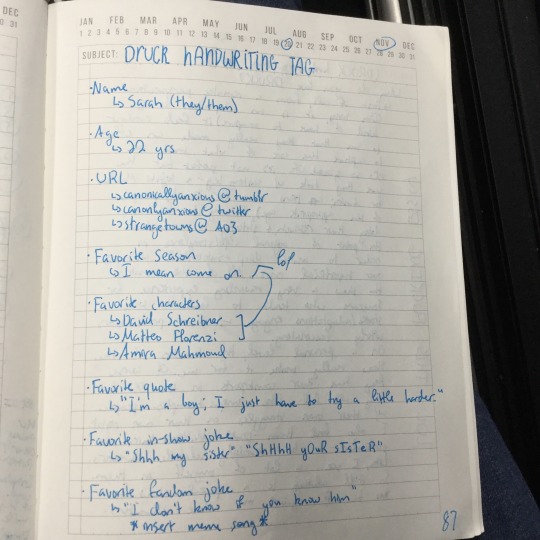 DEC
30 31
JAN FEB MAR APR MAY JUN JUL AUG SEP OCT NOV DEC
1 2 3 4 5 6 7 8 9 10 11 12 13 14 15 16 17 18 19 20 21 22 23 24 25 26 27 28 29 30 31
SUBJECT: DRUCK HANDWRITING TAG
· Name
↳ Sarah (they/them)
· Age
↳ 22 yrs
· URL
↳ canonicallyanxious @ tumblr
↳ canonlyanxious @ twitter
↳ strangetowns @ AO3
· Favorite season
↳ I mean come on. lol
· Favorite characters
↳ David Schreibner
↳ Matteo Florenzi
↳ Amira Mahmoud
· Favorite quote
↳ "I'm a boy; I just have to try a little harder."
· Favorite in-show joke
↳ "Shhh my sister" "ShHhH yOuR sIsTeR"
· Favorite fandom joke
↳ "I don't know if you know him"
*insert meme song*
87